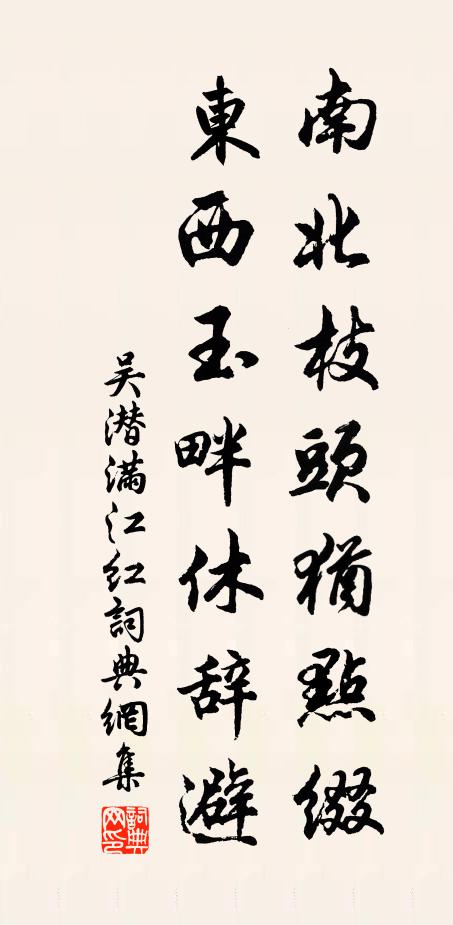 南北枝頭猶點綴
東西玉畔休辞避
吴潜滿江红詞典網集
詞典网印